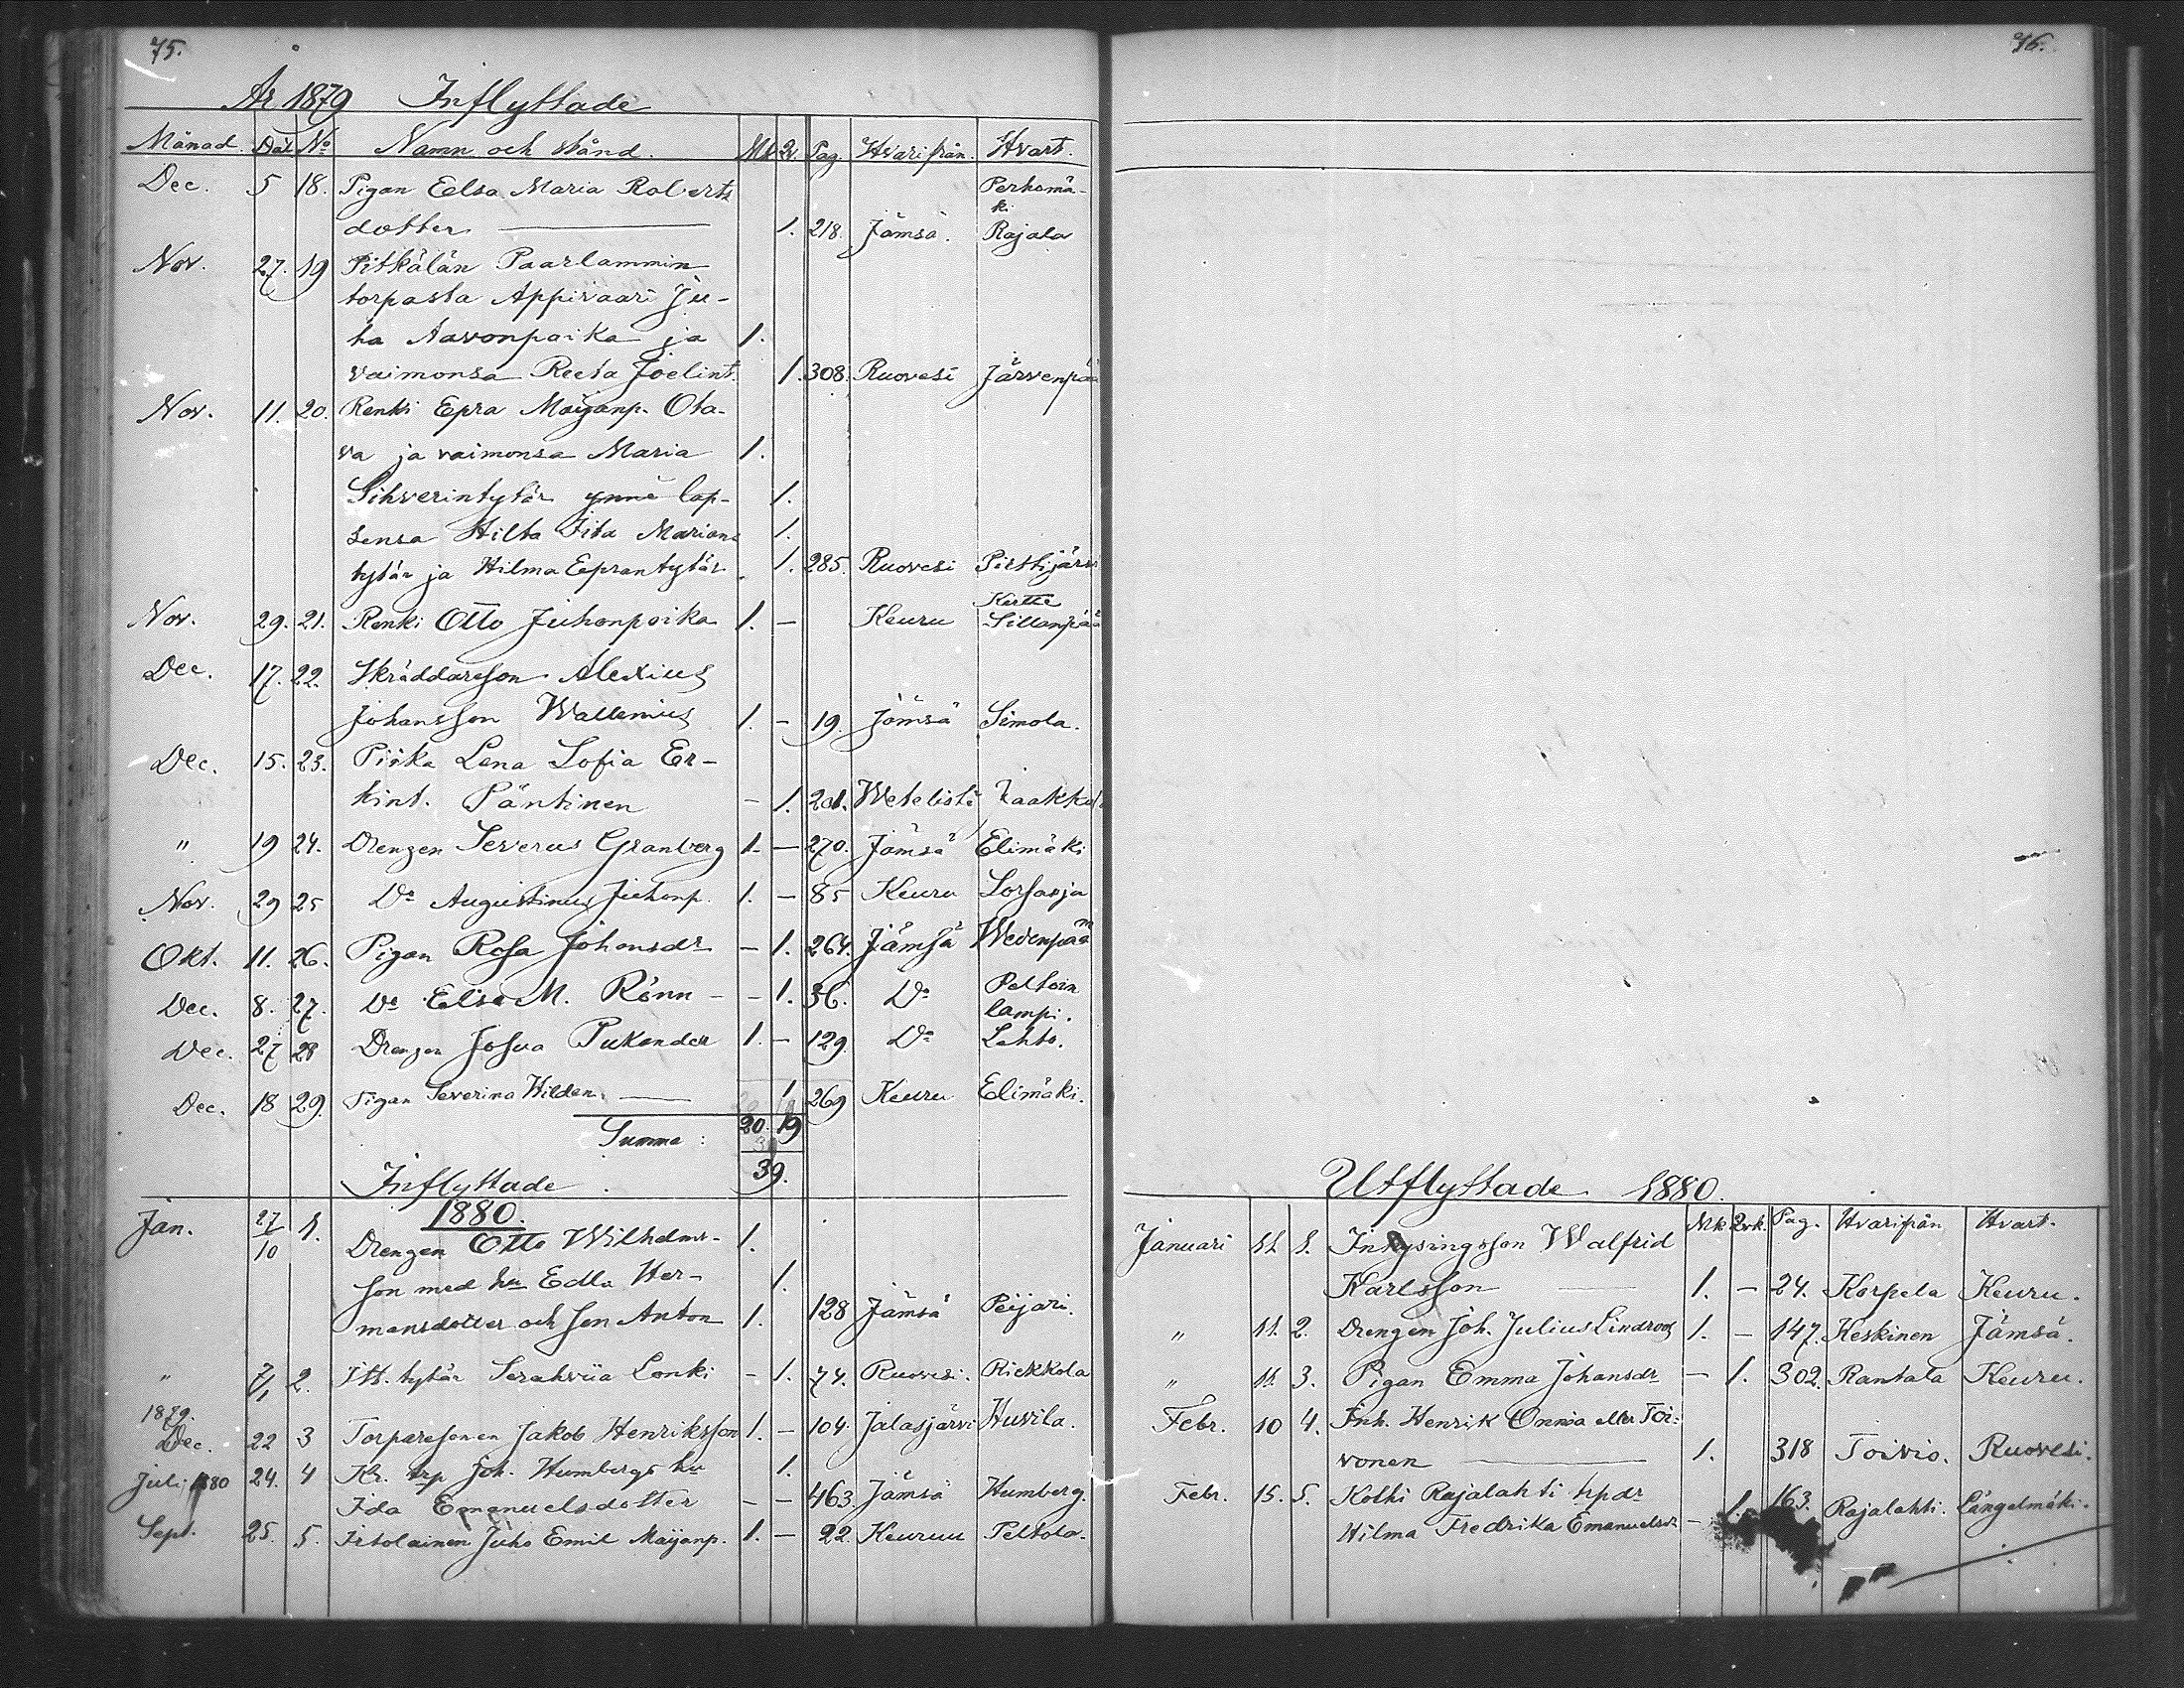 75.
År 1879 Inflyttade
Månad. Dat. No Namn och stånd. Mk Qv. Pag. Hvarifrån. Hvart.
Dec. 5 18. Pigan Eelsa Maria Roberts Perhomä-
ki
dotter 1. 218. Jämsä. Rajala
Nov. 27. 19 Pitkälän Paarlammin
torpasta Appivaari Ju-
ha Aavonpoika ja 1.
vaimonsa Reeta Joelint. 1. 308. Ruovesi Järvenpää
Nov. 11. 20. Renki Epra Maijanp. Ota-
va ja vaimonsa Maria 1.
Sihverintytär ynnä lap- 1.
sensa Hilta Iita Marian- 1.
tytär ja Hilma Eeprantytär 1. 285. Ruovesi Pirttijärvi
Nov. 29. 21. Renki Otto Juhonpoika 1. - Keuru Kertte
Sillanpää
Dec. 17. 22. Skräddaresson Alexius
Johansson Wallenius 1. - 19. Jämsä Simola.
Dec. 15. 23. Piika Lena Sofia Er-
kint. Päntinen - 1. 201. Weteliste
" 19 24. Drengen Severus Granberg 1. - 270. Jämsä Elimäki
Nov. 29 25 Do Augustinus Juhonp. 1. - 85 Keuru Lorsasja
Okt. 11. 26. Pigan Rosa Johansdr - 1. 264. Jämsä Wedenpää
Dec. 8. 27. Do Elsa M. Rönn - - 1. 36. Do Peltoin
lampi.
Dec. 27 28 Drengen Josua Pukander 1. - 129. Do Lehto.
Dec. 18 29. Pigan Severina Hilden. 1 269 Keuru Elimäki.
Summa: 20. 19
39.
Inflyttade
1880.
Jan. 27/10 1. Drengen Otto Wilhelms- 1.
son med hu Edla Her- 1.
mansdotter och son Anton 1. 128 Jämsä Peijari.
" 7/1 2. Itt. tytär Serahviia Lonki - 1. 74. Ruovesi. Riekkola
1879.
Dec. 22 3 Torparesonen Jakob Henriksson 1. - 104. Jalasjärvi Huvila.
Juli 1880 24. 4 Kr. trp Joh. Humbergs hu 1.
Ida Emanuelsdotter - - 463. Jämsä Humberg.
Sept. 25. 5. Irtolainen Juho Emil Maijanp. 1. - 22. Keuruu Peltola.
76.
Utflyttade 1880.
Mk Qvk. Pag. Hvarifrån Hvart.
Januari 11 1. Inhysingsson Walfrid
Karlsson 1. - 24. Korpela Keuru.
" 11. 2. Drengen Joh. Julius Lindroos 1. - 147. Keskinen Jämsä.
" 11. 3. Pigan Emma Johansdr - 1. 302. Rantala Keuru.
Febr. 10 4. Inh. Henrik Onnia eller Toi-
vonen 1. 318 Toivio. Ruovesi.
Febr. 15. 5. Kolhi Rajalahti trpdr
Hilma Fredrika Emanuelsdr - 1. 163. Rajalahti. Längelmäki.